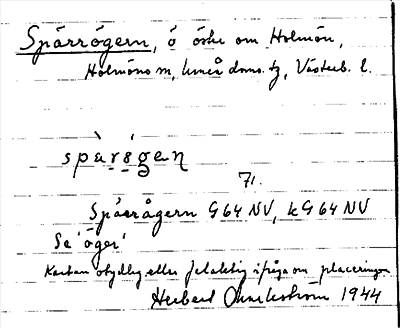 Spärrögern, ö öster om Holmön,
Holmöns sn, Umeå doms. tg, Västerb. l.
spàrǿgen
71.
Spärrågern G64 NV, kG64 NV
Se 'öger'
Kartan otydlig eller felaktig ifråga om placeringen
Herbert 1944